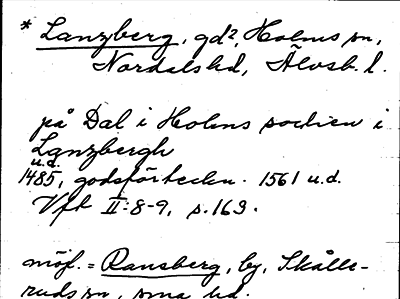 * Lanzberg, gd?, Holms sn,
Nordals hd, Älvsb. l.
på Dal i Holms socken i
Lanzbergh
u.d.
1485, godsförteckn. 1561 u.d.
Vft II:8-9, s. 163.
möjl. = Ransberg, by, Skålle-
ruds sn, sma hd.